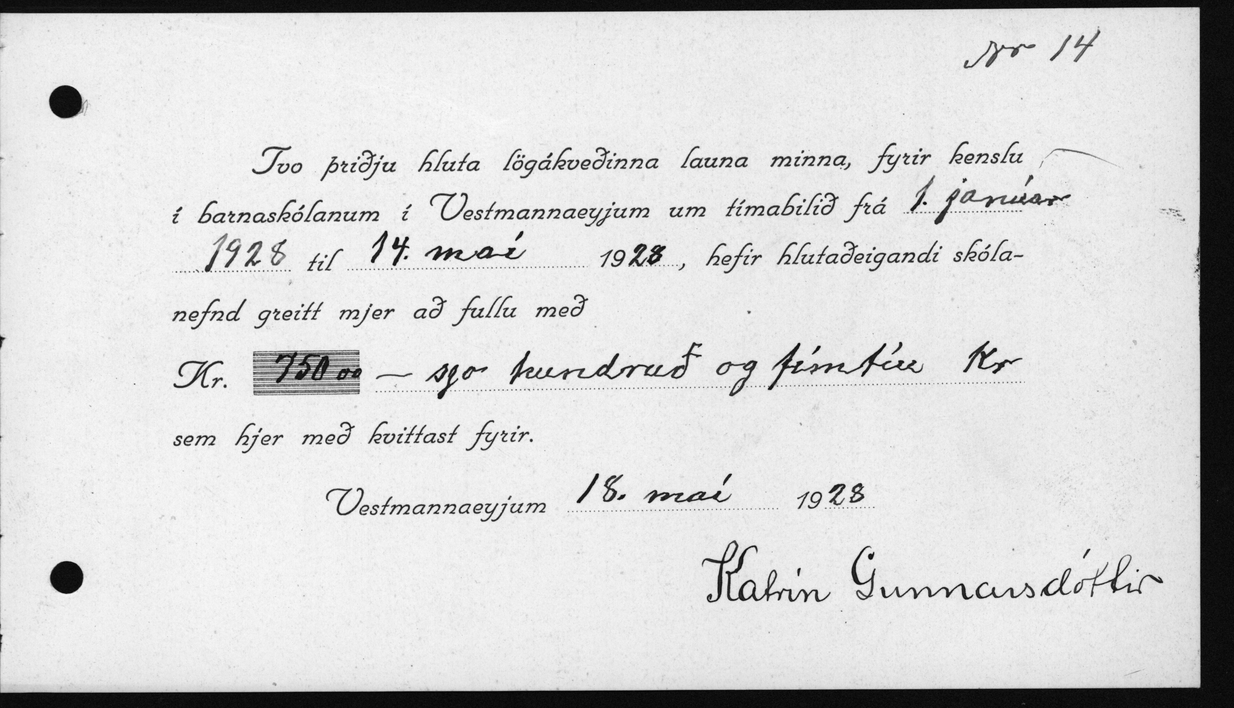 Nr 14
Tvo þriðju hluta lögákveðinna launa minna, fyrir kenslu
í barnaskólanum í Vestmannaeyjum um tímabilið frá 1. janúar
1928 til 14. maí 1928, hefir hlutaðeigandi skóla-
nefnd greitt mjer að fullu með
Kr. 750 00 — sjö hundruð og fimtíu Kr
sem hjer með kvittast fyrir.
Vestmannaeyjum 18. maí 1928
Katrín Gunnarsdóttir